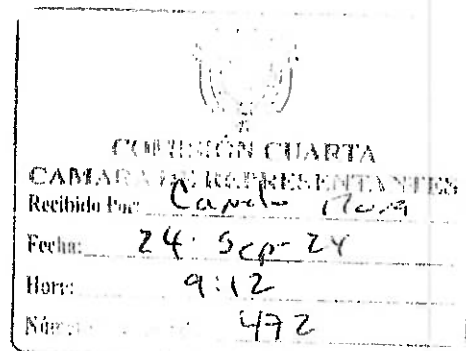 COMISIÓN CUARTA
CAMARA DE REPRESENTANTES
Recibido Por:
Fecha: 24 Sep-24
Hora: 9:12
472